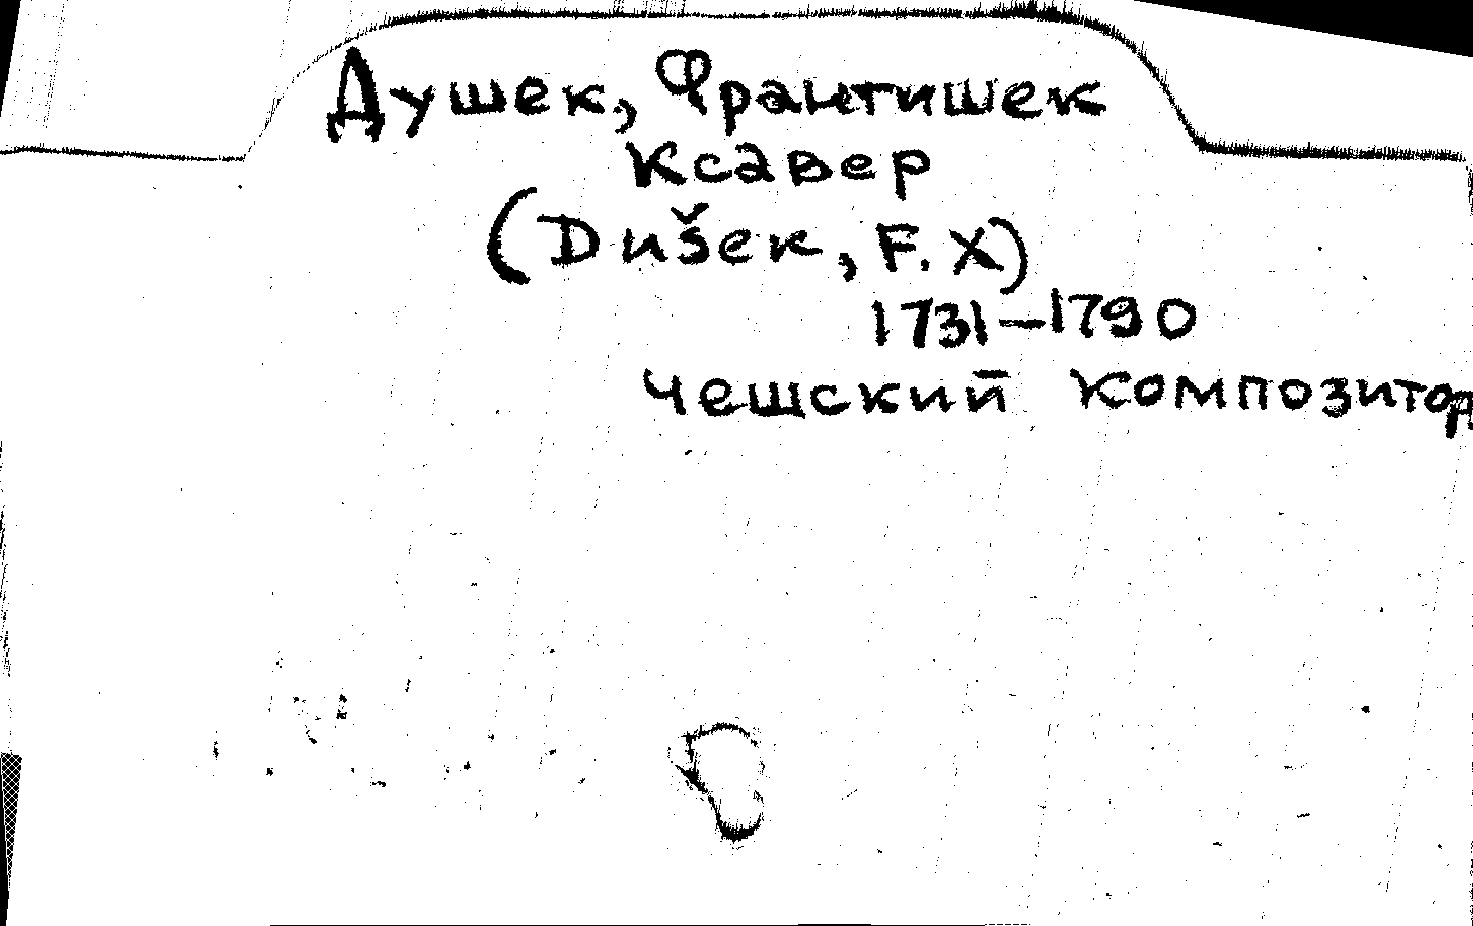 Душек, Франтишек
Ксавер
(Dušek, F. X)
1731–1790
Чешский композитор